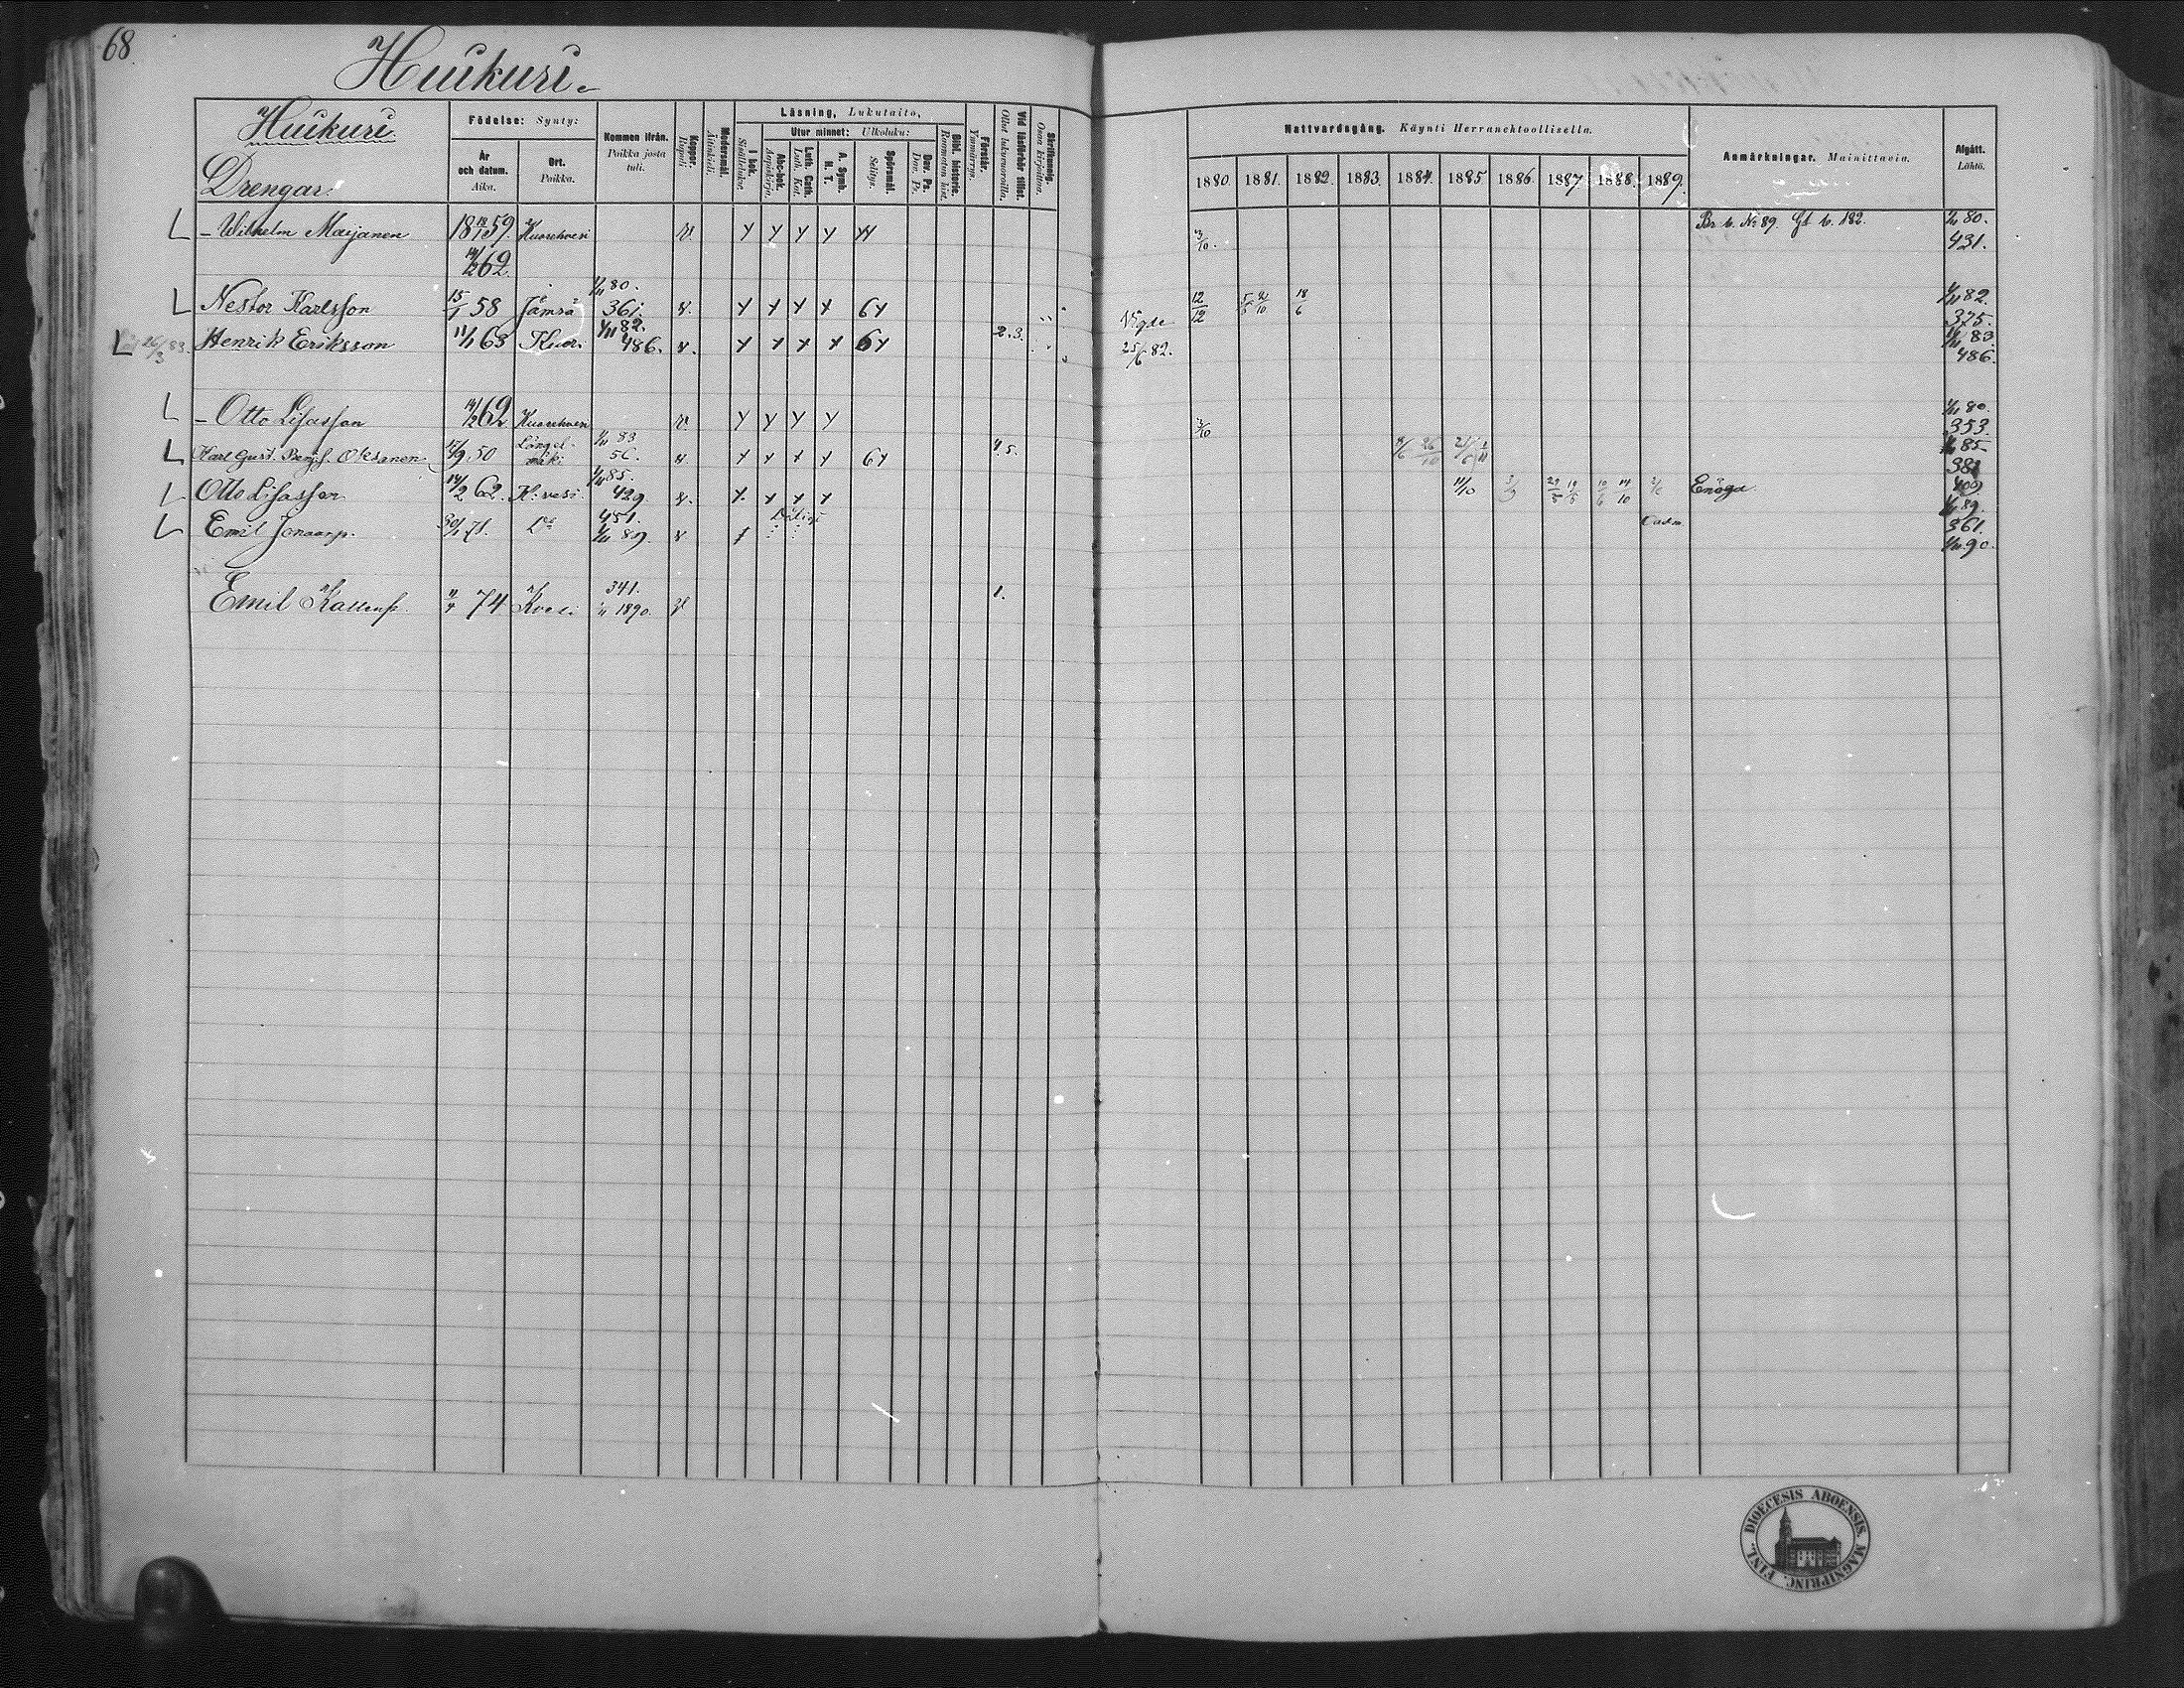 68.
Huikuri.
Huikuri.
Drengar.
Födelse: Synty:
År och datum. Aika.
Ort. Paikka.
Kommen ifrån. Paikka josta tuli.
Koppor. Rupuli.
Modersmål. Äitinkieli.
Läsning, Lukutaito,
I bok. Sisällluku.
Utur minnet: Ulkoluku:
Abc-bok. Aapiskirja.
Luth. Cath. Luth. Kat.
A. Symb. H. T.
Spörsmål. Selitys.
Dav. Ps. Dav. Ps.
Bibl. historie. Raamatun hist.
Förstår. Ymmärrys.
Vid läsförhör tillst. Ollut lukuvuoroilla.
Skrifkunnig. Osaa kirjoittaa.
Nattvardsgång. Käynti Herranehtoollisella.
1880. 1881. 1882. 1883. 1884. 1885. 1886. 1887 1888. 1889.
Anmärkningar. Mainittavia.
Afgått. Lähtö.
Wilhelm Maijanen 18 59 Kuorehvesi v. 3/10. Br b. No 89. 1/11 80. 431.
14/12 62.
Nestor Karlsson 15/1 58 Jämsä 1/11 80. 361. v. 6 12/12 18/6 1/11 82. 375.
26/3 83. Henrik Eriksson 11/1 63 Kuor. 1/11 82. 486. v. 2.3. Vigde 25/6 82. 1/11 83 486.
Otto Lisasson 14/12 62 Kuorehvesi v. 3/10 1/11 80. 353.
Karl Gust. Benj.s. Oksanen 17/9 50 Längelmäki 1/11 83 56. v. 4.5. 1/11 85 381
Otto Lisasson 14/12 62. K:vesi 1/11 85. 429. v. 11/10 29/5 19/5 10/6 14/10 Enöga. 409
Emil Jonassn. 30/1 71. Do 451. 1/11 89. v Dåligt 1/11 89. 361.
1/11 90.
Emil Kallenp. 11/4 74 Kvesi 341. 1/11 1890. v 1.
DIOECESIS ABOENSIS. MAGNIPRINC. FINL.